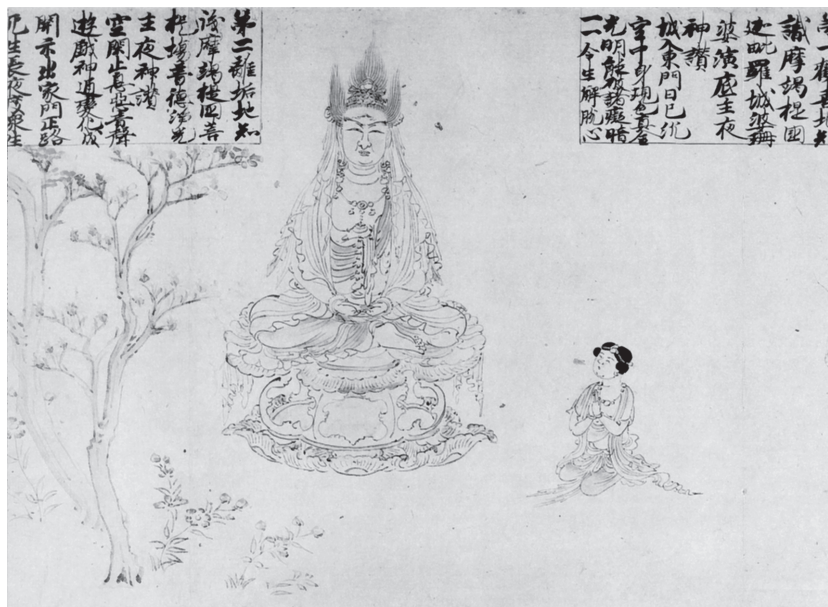 第一歡喜地知
識摩竭提國
迦毗羅城婆珊
婆演底主夜
神讃
城入東門日已沈
空中即現色真金
光明能破諸癡暗
一一令生解脱心
第二離垢地知
識摩竭提國菩
提場普德淨光
主夜神讃
空閑止息
遊戲神通變化成
開示出家門正路
死生長夜衆生